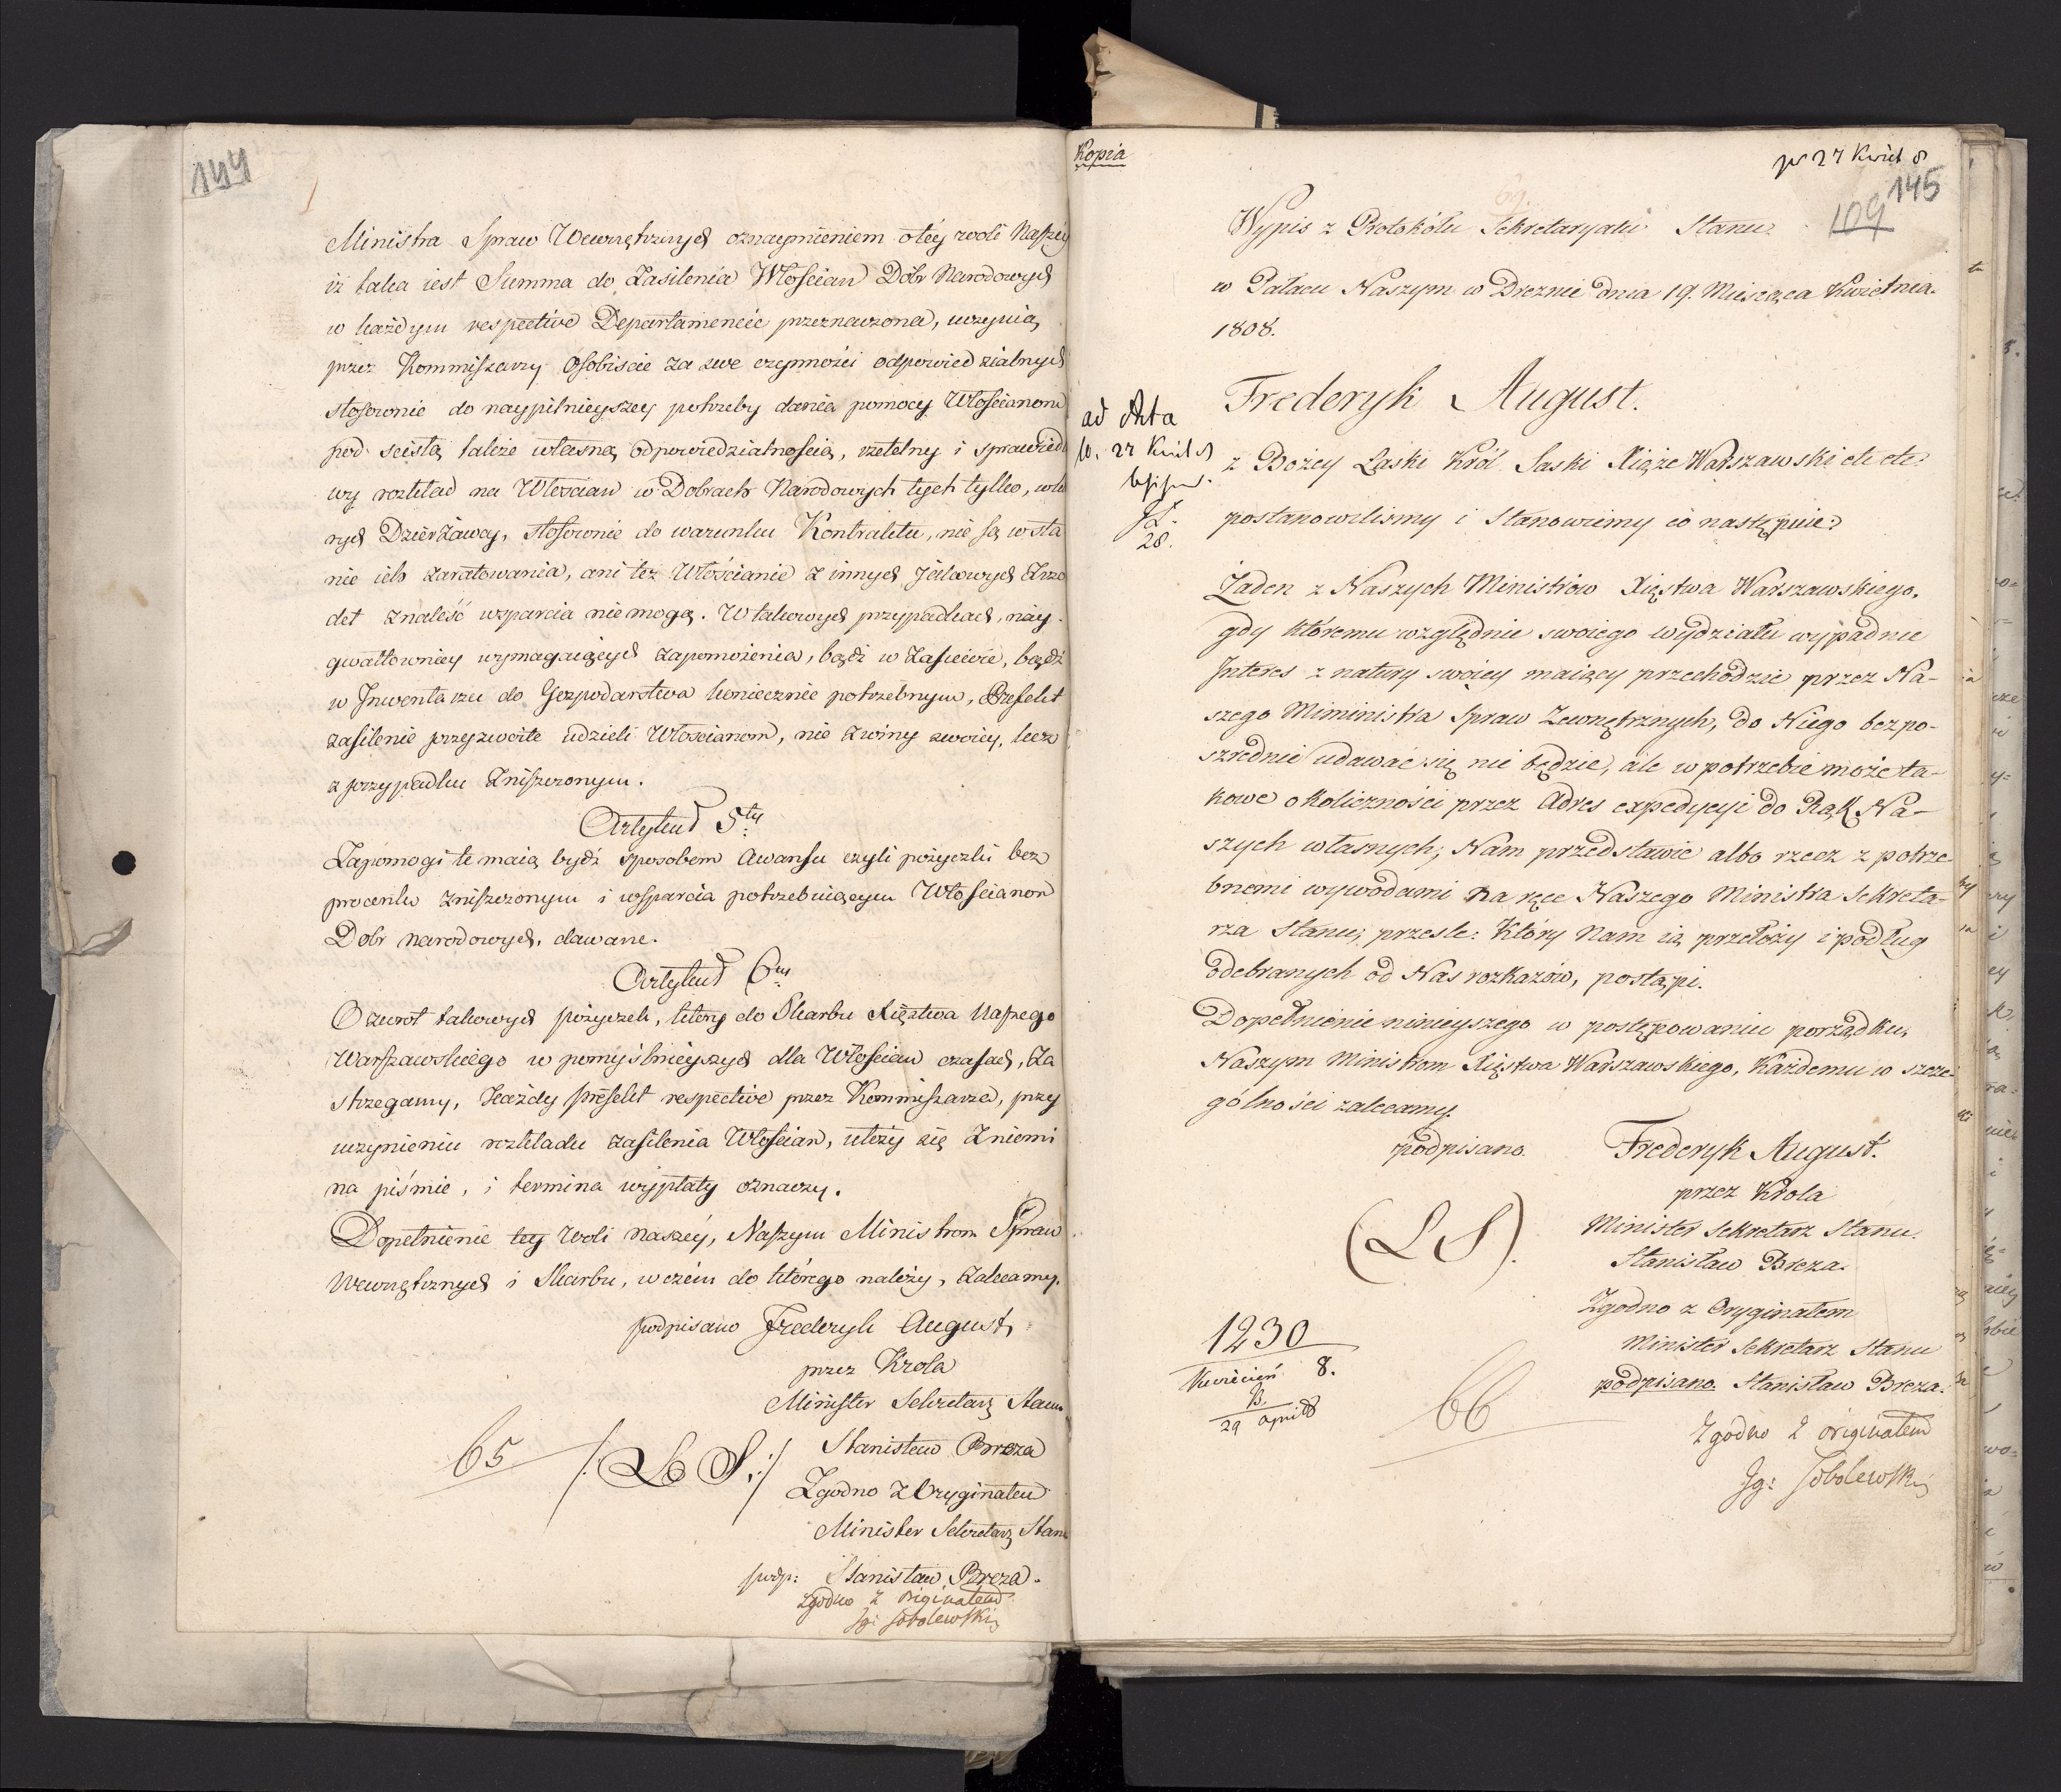 144
Ministra Spraw Wewnętrznych oznaymieniem o téy woli Naszéy
iż taka iest Summa do Zasilenia Włościan Dóbr Narodowych
w każdym respective Departamencie przeznaczona, uczynią
przez Kommissarzy osobiscie za swe czynności odpowiedzialnych
stosownie do naypilnieyszey potrzeby dania pomocy Włościanom
pod scisłą także własną odpowiedzialnością, rzetelny i sprawiedl
wy rozkład na Włoscian w Dobrach Narodowych tych tylko, któ
rych Dzierżawcy, stosownie do warunku Kontraktu, nie są w sta
nie ich zaratowania, ani też Włościanie z innych Źrzo
deł znaleść wsparcia nie mogą. W takowych przypadkach, náy
gwałtowniey wymagaiących zapomożenia, bądź w Zasiewie, bądź
w Inwentarzu do Gospodarstwa koniecznie potrzebnym, Prefekt
zasilenie przyzwoite udzieli Włościanom, nie z winy swoiey, lecz
z przypadku zniszczonym.
Artykuł 5ty
Zapomogi te maią bydź sposobem Awansu czyli pożyczki bez
procentu zniszczonym i wsparcia potrzebuiącym Włościanom
Dobr narodowych, dawane.
Artykuł 6ty
O zwrot takowych pożyczek, który do Skarbu Xięztwa Naszego
Warszawskiego w pomyślnieyszych dla Włościan czasach, Za
strzegamy, Każdy prefekt respective przez Kommissarza, przy
uczynieniu rozkładu zasilenia Włościan, ułoży się z niemi
na piśmie, i termina wypłaty oznaczy.
Dopełnienie tey woli naszéy, Naszym Ministrom Spraw
Wewnętrznych i Skarbu, w czém do którego należy, Zalecamy.
podpisano Frederyk August,
przez Krola
Minister Sekretarz Stanu
65 /: L S :/ Stanisław Breza
Zgodno z Oryginałem
Minister Sekretarz Stanu
podp: Stanisław Breza.
Zgodno z Originałem
Jg: Sobolewski
Kopia
pr 27 Kwiet 8
145
69.
109
Wypis z Protokółu Sekretaryatu Stanu.
w Pałacu Naszym w Dreznie dnia 19. Miesiąca Kwietnia.
1808.
Frederyk August.
ad Akta
27 Kwiet 8
28.
z Bożey Łaski Król Saski Xiąże Warszawski etc etc:
postanowilismy i Stanowiemy co następuie:
Żaden z Naszych Ministrów Xięstwa Warszawskiego,
gdy któremu względnie swoiego wydziału wypadnie
Interes z natury swoiey maiący przechodzic przez Na-
szego Miministra Spraw Zewnętrznych, do Niego bezpo-
szrednie udawać się nie będzie, ale w potrzebie może ta-
kowe okoliczności przez Adres expedycyi do Rąk Na-
szych własnych, Nam przedstawic albo rzecz z potrze-
bnemi wywodami na ręce Naszego Ministra Sekreta-
rza Stanu, przesle: Który Nam ią przełoży i podług
odebranych od Nas rozkazów, postąpi.
Dopełnienie ninieyszego w postępowaniu porządku,
Naszym Ministrom Xięstwa Warszawskiego, Każdemu w szcze-
gólności zalecamy.
podpisano. Frederyk August.
przez Krola
Minister Sekretarz Stanu.
(L S). Stanisław Breza.
Zgodno z Oryginałem
Minister Sekretarz Stanu
podpisano. Stanisław Breza.
1230
Kwiecień 8.
B.
29 April 8
66
Zgodno z originałem
Jg: Sobolewski